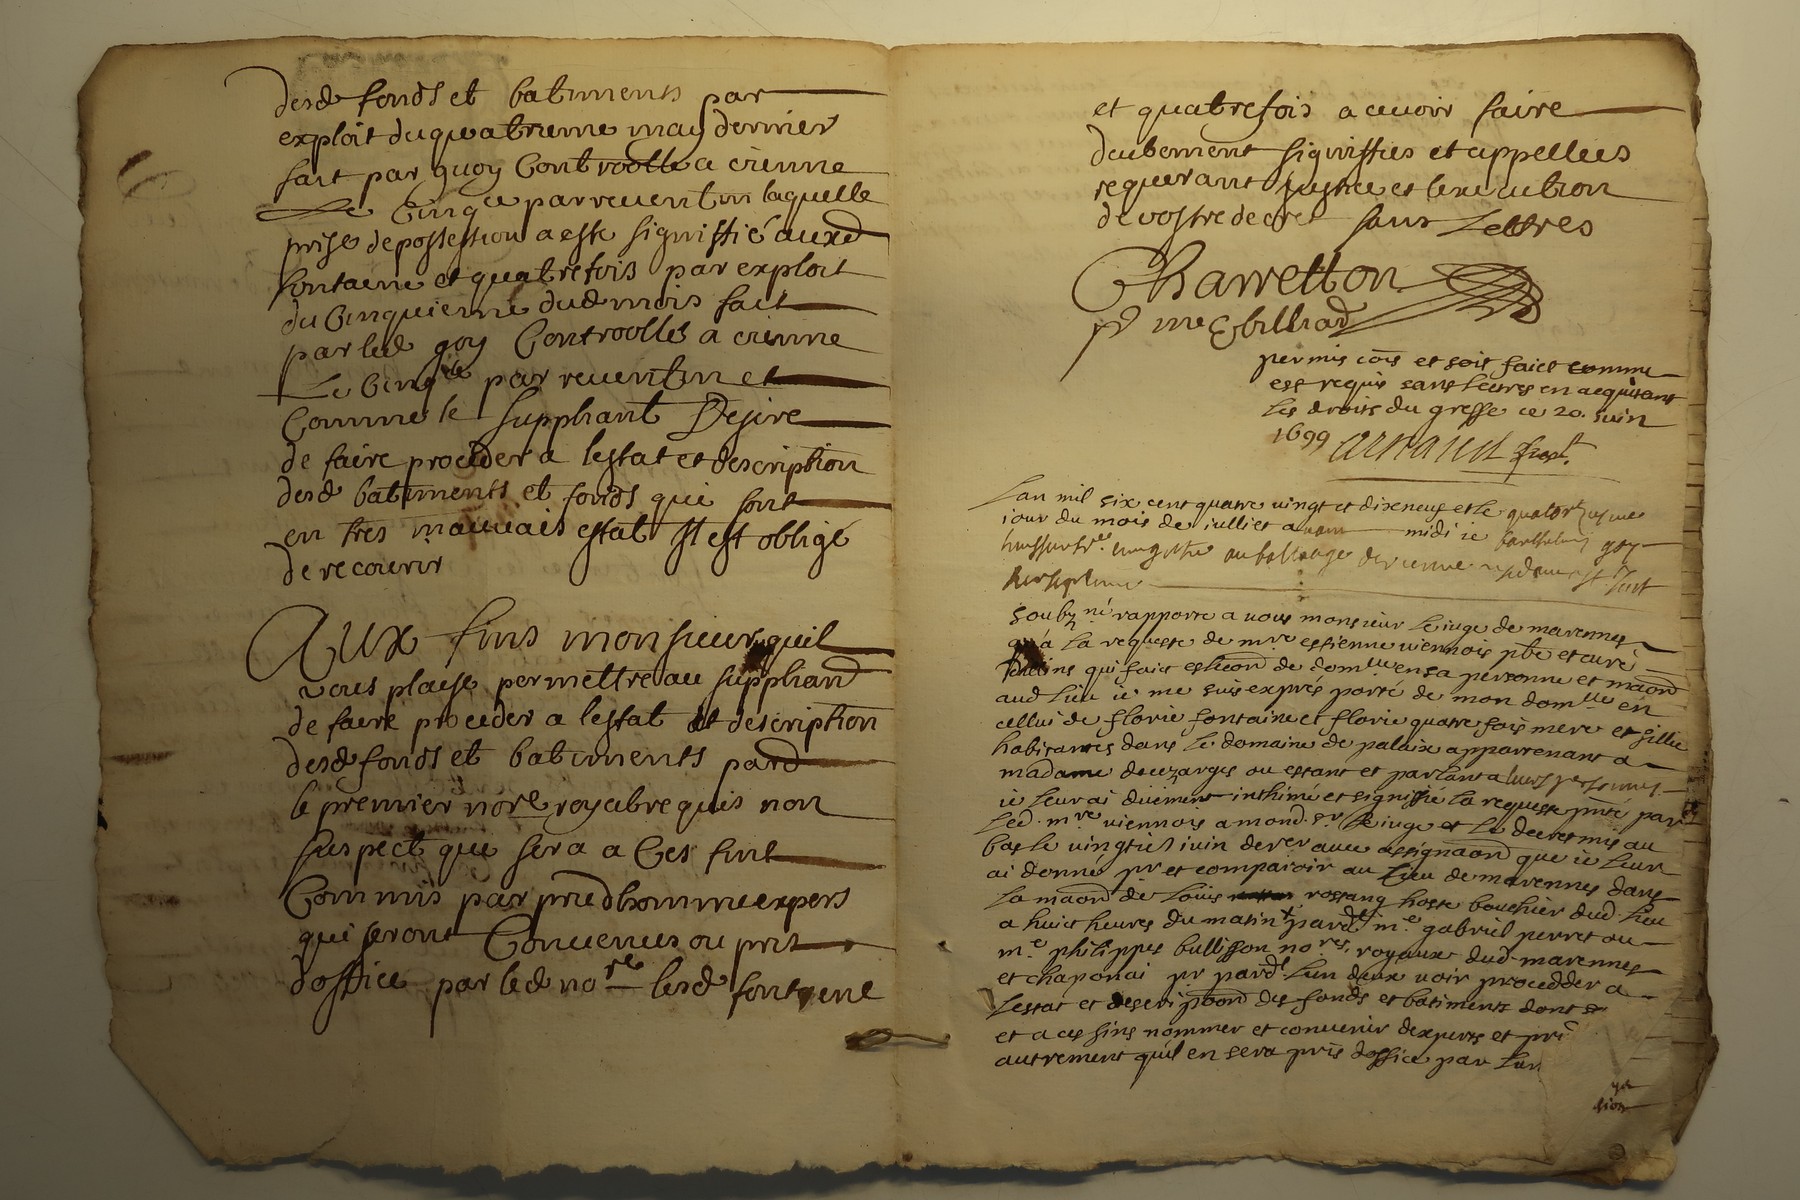 desd fonds et batiments par
exploit du quatrieme may dernier
fait par goy Controolle a vienne
Le Cinqe par reuenton laquelle
prise de possession a este signiffié auxd
fontaine et quatrefois par exploit
du Cinquieme dud mois fait
par led goy Controolle a vienne
Le Cinqe par reuenton et
Comme le Suppliant Desire
de faire proceder a lestat et description
desd batiments et fonds qui sont
en tres mauvais estat Il est obligé
de recourir
Aux fins monsieur quil
vous plaise permettre au suppliand
de faire proceder a lestat et description
desd fonds et batiments pard
le premier nore royal requis non
suspect que sera a Ces fins
Commis par prudhomme expers
qui seront Conuenus ou pris
doffice par led nore lesd fontaine
et quatrefois a ce uoir faire
duebement signiffies et appellees
requerant justice et lexecution
de vostre decret sans Lettres
Charretton
pr me billiad
permis cōis et soit faict comme
est requis sans lectres en acquitant
les droits du greffe ce 20. Juin
1699 arnaud
Lan mil six cent quatre vingt et dixneuf et le quatorzyeme
jour du mois de julliet auant midi je barthelemy goy
au bailliage de vienne
soubzné rapporte a vous monsieur le juge de marennes
qu'a la requeste de mre estienne viennois pbre et curé
qui faict eslicōn de domlle en sa personne et maōn
aud lieu je me suis exprés porté de mon domlle en
cellui de florie fontaine et florie quatrefois mere et fillie
habitantes dans le domaine de palaix appartenant a
madame deuzarges ou estant et parlant a leurs personnes
je leur ai düement inthimé et signiffié la requeste pnté par
led. mre viennois a mond. sr le juge et le decret mis au
bas le vingties juin derer auec assignaōn que je leur
ai donné pr et comparoir au lieu de marennes dans
la maōn de louis rossang hoste bouchier dud. lieu
a huict heures du matin pard me gabriel perret ou
me philippes bullisson nores royaux dud. marennes
et chaponai pr pard lun deux voir procedder a
lestat et descripōn des fonds et batiments dont
et a ces fins nommer et conuenir dexperts et
autrement qu'il en sera pris doffice par